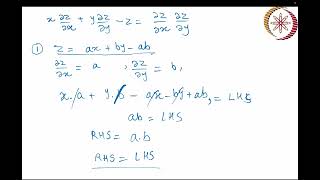 x ∂z/∂x + y ∂z/∂y - z = ∂z/∂x ∂z/∂y
① z = ax + by - ab
∂z/∂x = a , ∂z/∂y = b,
x.a + y.b - ax - by + ab, = LHS
ab = LHS
RHS = a.b
RHS = LHS